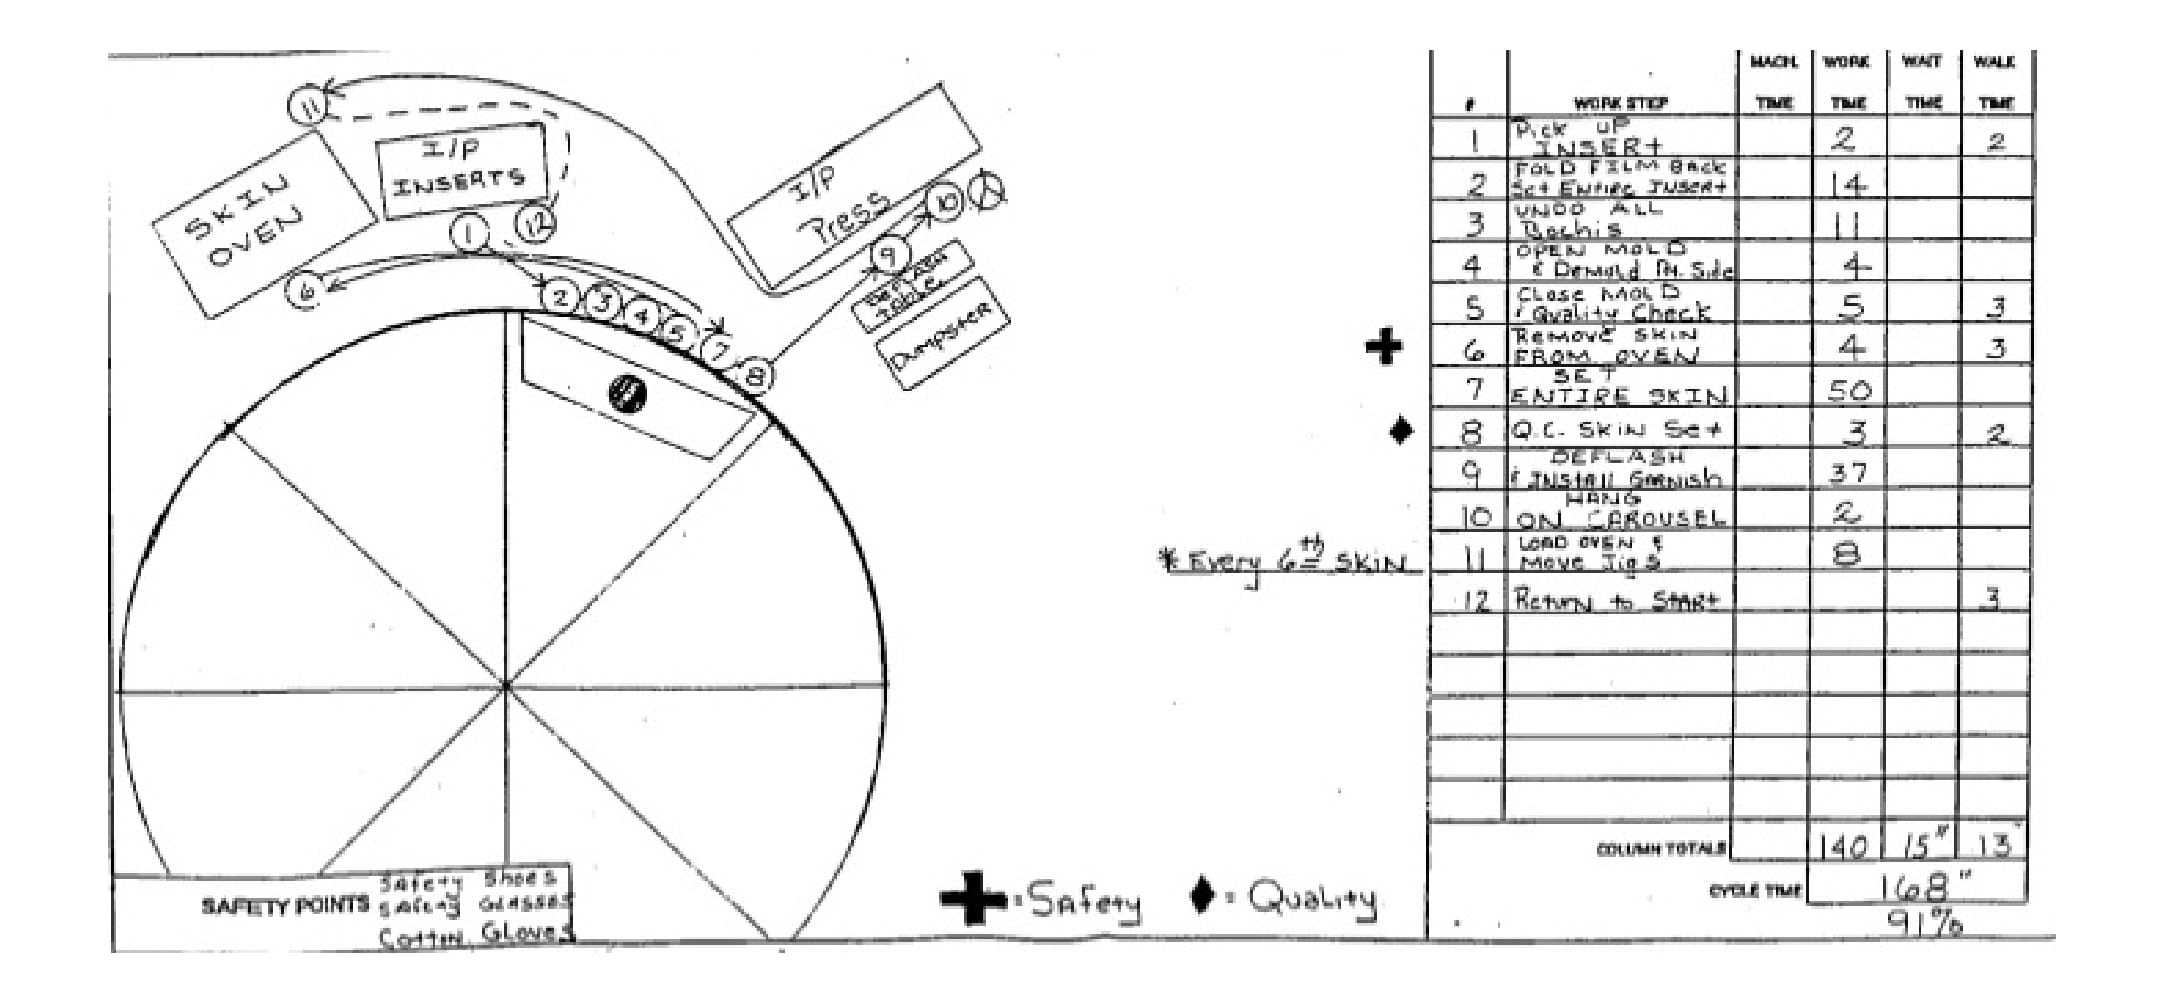 11
I/P
INSERTS
SKIN
OVEN
I/P
Press
1
12
10
9
6
2
3
4
5
7
8
DEFLASH
table
Dumpster
SAFETY POINTS
Safety Shoes
Safety Glasses
Cotton Gloves
* Every 6th SKIN
= Safety
= Quality
# WORK STEP MACH. TIME WORK TIME WAIT TIME WALK TIME
1 Pick UP INSERt 2 2
2 FOLD FILM BACK Set Entire Insert 14
3 UNDO ALL 11
4 OPEN MOLD & Demold Pa. Side 4
5 Close MOLD & Quality Check 5 3
6 Remove SKIN FROM OVEN 4 3
7 SET ENTIRE SKIN 50
8 Q.C. SKIN Set 3 2
9 DEFLASH & INStall Garnish 37
10 HANG ON CAROUSEL 2
11 LOAD OVEN & Move Jigs 8
12 Return to START 3
COLUMN TOTALS 140 15" 13"
CYCLE TIME 168"
91%